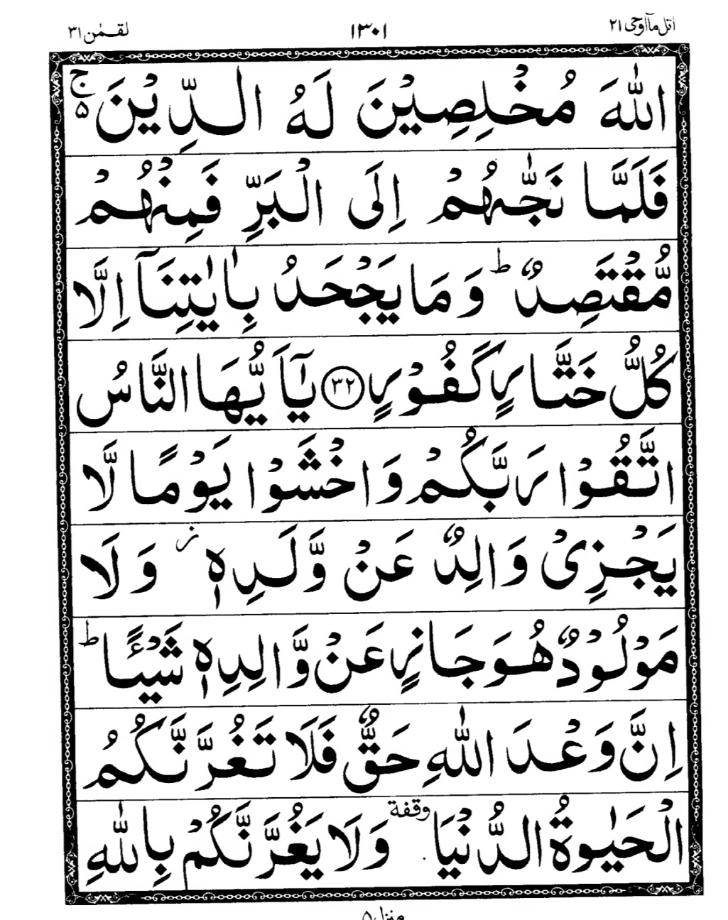 اتل مآاوحی ۲۱ ۱۳۰۱ لقمٰن ۳۱
اللّٰهَ مُخْلِصِيْنَ لَهُ الدِّيْنَ ۚ۵
فَلَمَّا نَجّٰىهُمْ اِلَى الْبَرِّ فَمِنْهُمْ
مُّقْتَصِدٌ ؕ وَمَا يَجْحَدُ بِاٰيٰتِنَاۤ اِلَّا
كُلُّ خَتَّارٍ كَفُوْرٍ ﴿۳۲﴾ يٰۤاَيُّهَا النَّاسُ
اتَّقُوْا رَبَّكُمْ وَاخْشَوْا يَوْمًا لَّا
يَجْزِىْ وَالِدٌ عَنْ وَّلَدِهٖ ز وَلَا
مَوْلُوْدٌ هُوَ جَازٍ عَنْ وَّالِدِهٖ شَيْـًٔا ؕ
اِنَّ وَعْدَ اللّٰهِ حَقٌّ فَلَا تَغُرَّنَّكُمُ
الْحَيٰوةُ الدُّنْيَا وقفة وَلَا يَغُرَّنَّكُمْ بِاللّٰهِ
منزل ۵